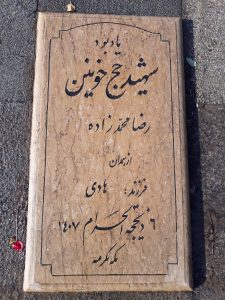 یادبود
شهید حج خونین
رضا محمدزاده
از همدان
فرزند: هادی
۶ ذیحجة الحرام ۱۴۰۷
مکه مکرمه